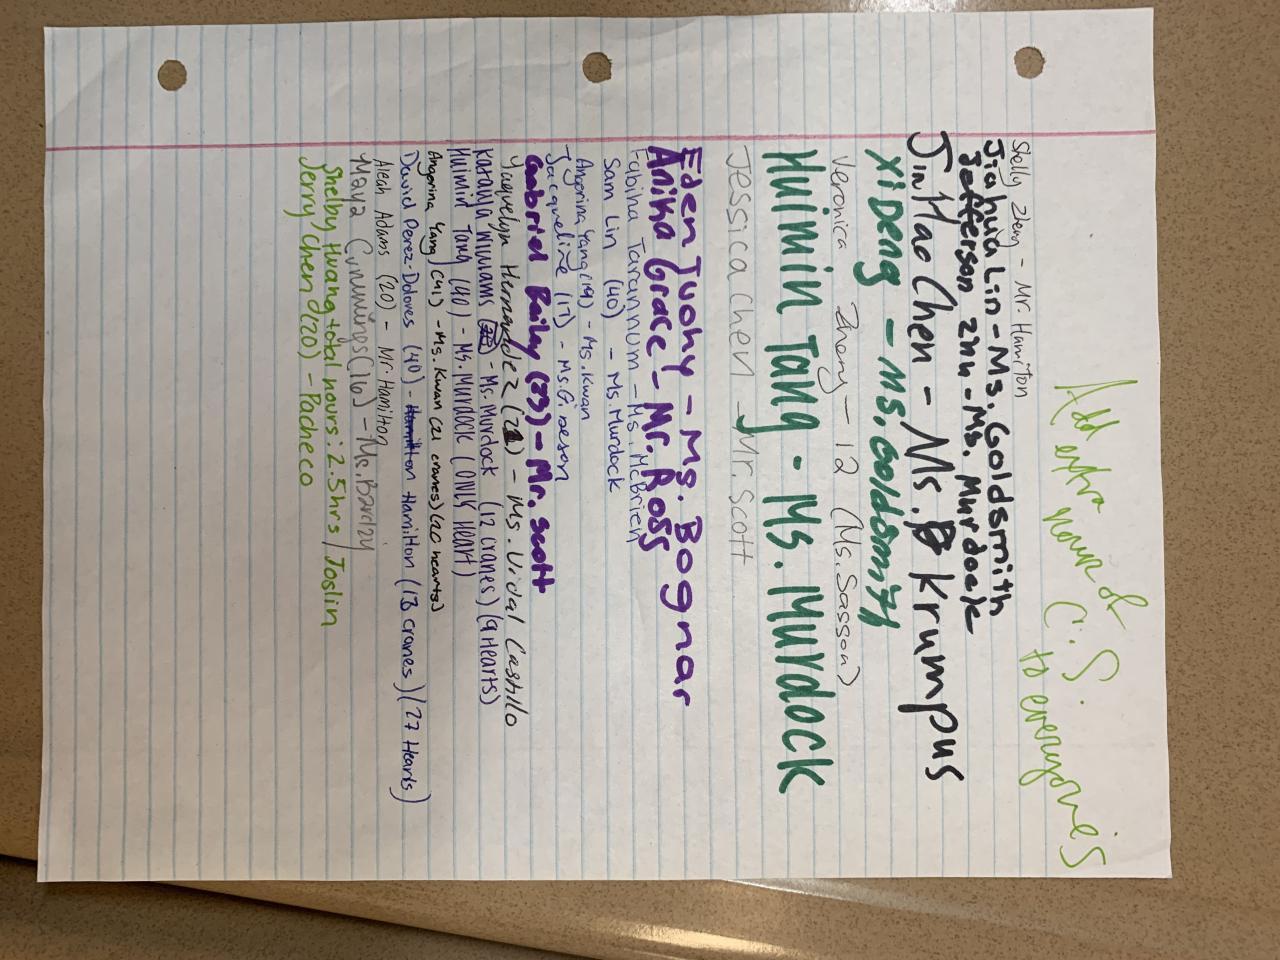 Add extra hour of
C.S.
to everyone's
Shelly Zheng - Mr. Hamilton
Jiahua Lin - Ms. Goldsmith
Jefferson Zhu - Ms. Murdock
JinHao Chen - Ms. Krumpus
Xi Deng - Ms. Goldsmith
Veronica Zheng - 12 (Ms. Sasson)
Huimin Tang - Ms. Murdock
Jessica Chen - Mr. Scott
Eden Tuohy - Ms. Bognar
Anika Grace - Mr. Ross
Fabiha Tarannum - Ms. McBrien
Sam Lin (40) - Ms. Murdock
Angerina Yang (19) - Ms. Kwan
Jacqueline (17) - Ms. Gibeson
Gabriel Bailey (23) - Mr. Scott
Yaquelyn Hernandez (21) - Ms. Vidal Castillo
Williams - Ms. Murdock (12 cranes) (9 Hearts)
Huimin Tang (40) - Ms. Murdock (ONLY HEART)
Angerina Yang (41) - Ms. Kwan (21 cranes) (20 hearts)
David Perez-Dolores (40) - Hamilton Hamilton (13 cranes) (27 Hearts)
Aleah Adams (20) - Mr. Hamilton
Maya Cummings (16) - Ms. Barclay
Shelby Hwang total hours: 2.5hrs / Joslin
Jerry Chen (20) - Pacheco